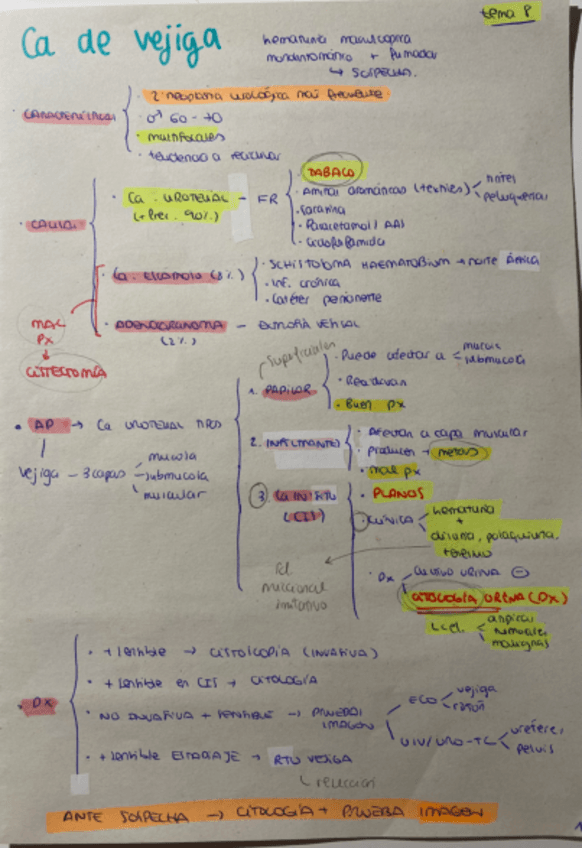 tema 8
Ca de vejiga
hematuria macroscópica
monosintomática + fumador
↳ SOSPECHA.
· CARACTERÍSTICAS
· 2ª neoplasia urológica más frecuente
· ♂ 60-70
· multifocales
· tendencia a recidivar
· CAUSAS
· Ca. UROTELIAL - FR
(+ frec. 90%)
· TABACO
· Aminas aromáticas (textiles)
tintes
peluquerías
· Sacarina
· Paracetamol / AAS
· Ciclofosfamida
· Ca. ESCAMOSO (8%)
· SCHISTOSOMA HAEMATOBIUM → norte África
· Inf. crónica
· Catéter permanente
· ADENOCARCINOMA - EXTROFIA VESICAL
(2%)
MAL
PX
↓
CISTECTOMÍA
• AP → Ca UROTELIAL TIPOS
vejiga - 3 capas
mucosa
submucosa
muscular
superficiales
1. PAPILAR
· Puede afectar a
mucosa
submucosa
· Recidivan
· Buen px
2. INFILTRANTE
· Afectan a capa muscular
· Producen → metas
· mal px
3. Ca IN SITU
(CIS)
· PLANOS
· CLÍNICA
hematuria
+
disuria, polaquiuria,
tenesmo
Sd
miccional
irritativo
· Dx
CULTIVO URINA ⊖
CITOLOGÍA URINA (DX)
↳ cel.
atípicas
tumorales
malignas
• DX
· + sensible → CISTOSCOPIA (INVASIVA)
· + sensible en CIS → CITOLOGÍA
· NO INVASIVA + SENSIBLE → PRUEBAS IMAGEN
ECO
vejiga
riñón
UIV/URO-TC
uréteres
pelvis
· + sensible ESTADIAJE → RTU VEJIGA
↳ resección
ANTE SOSPECHA → CITOLOGÍA + PRUEBA IMAGEN
1